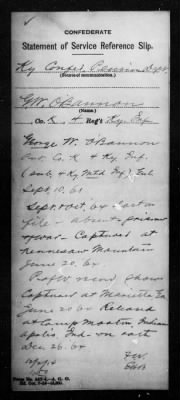 CONFEDERATE
Statement of Service Reference Slip.
Ky Confed. Pension Dept.
(Source of communication.)
G.W. O'Bannon
(Name.)
Co. K, 4 Reg't Ky. Inf.
George W. O'Bannon
Co. K 4 Ky. Inf.
(sub. 4 Ky Mtd Inf.) Enl.
Sept. 10, 61
Sept. & Oct. 64 last on
file - absent - prisoner
of war - Captured at
Kennesaw Mountain
June 20. 64
P of W record shows
Captured at Marietta Ga
June 20 64 Released
at Camp Morton Indian-
apolis Ind - on oath
Dec. 26. 64